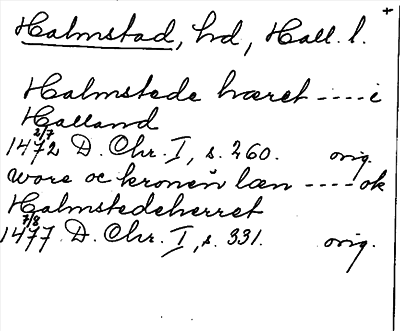 +
Halmstad, hd, Hall. l.
Halmstede hæret ---- i
Halland
2/7
1472 D. Chr. I, s. 260. orig.
wore oc kronen læn ---- ok
Halmstedeherret
7/8
1477 D. Chr. I, s. 331. orig.